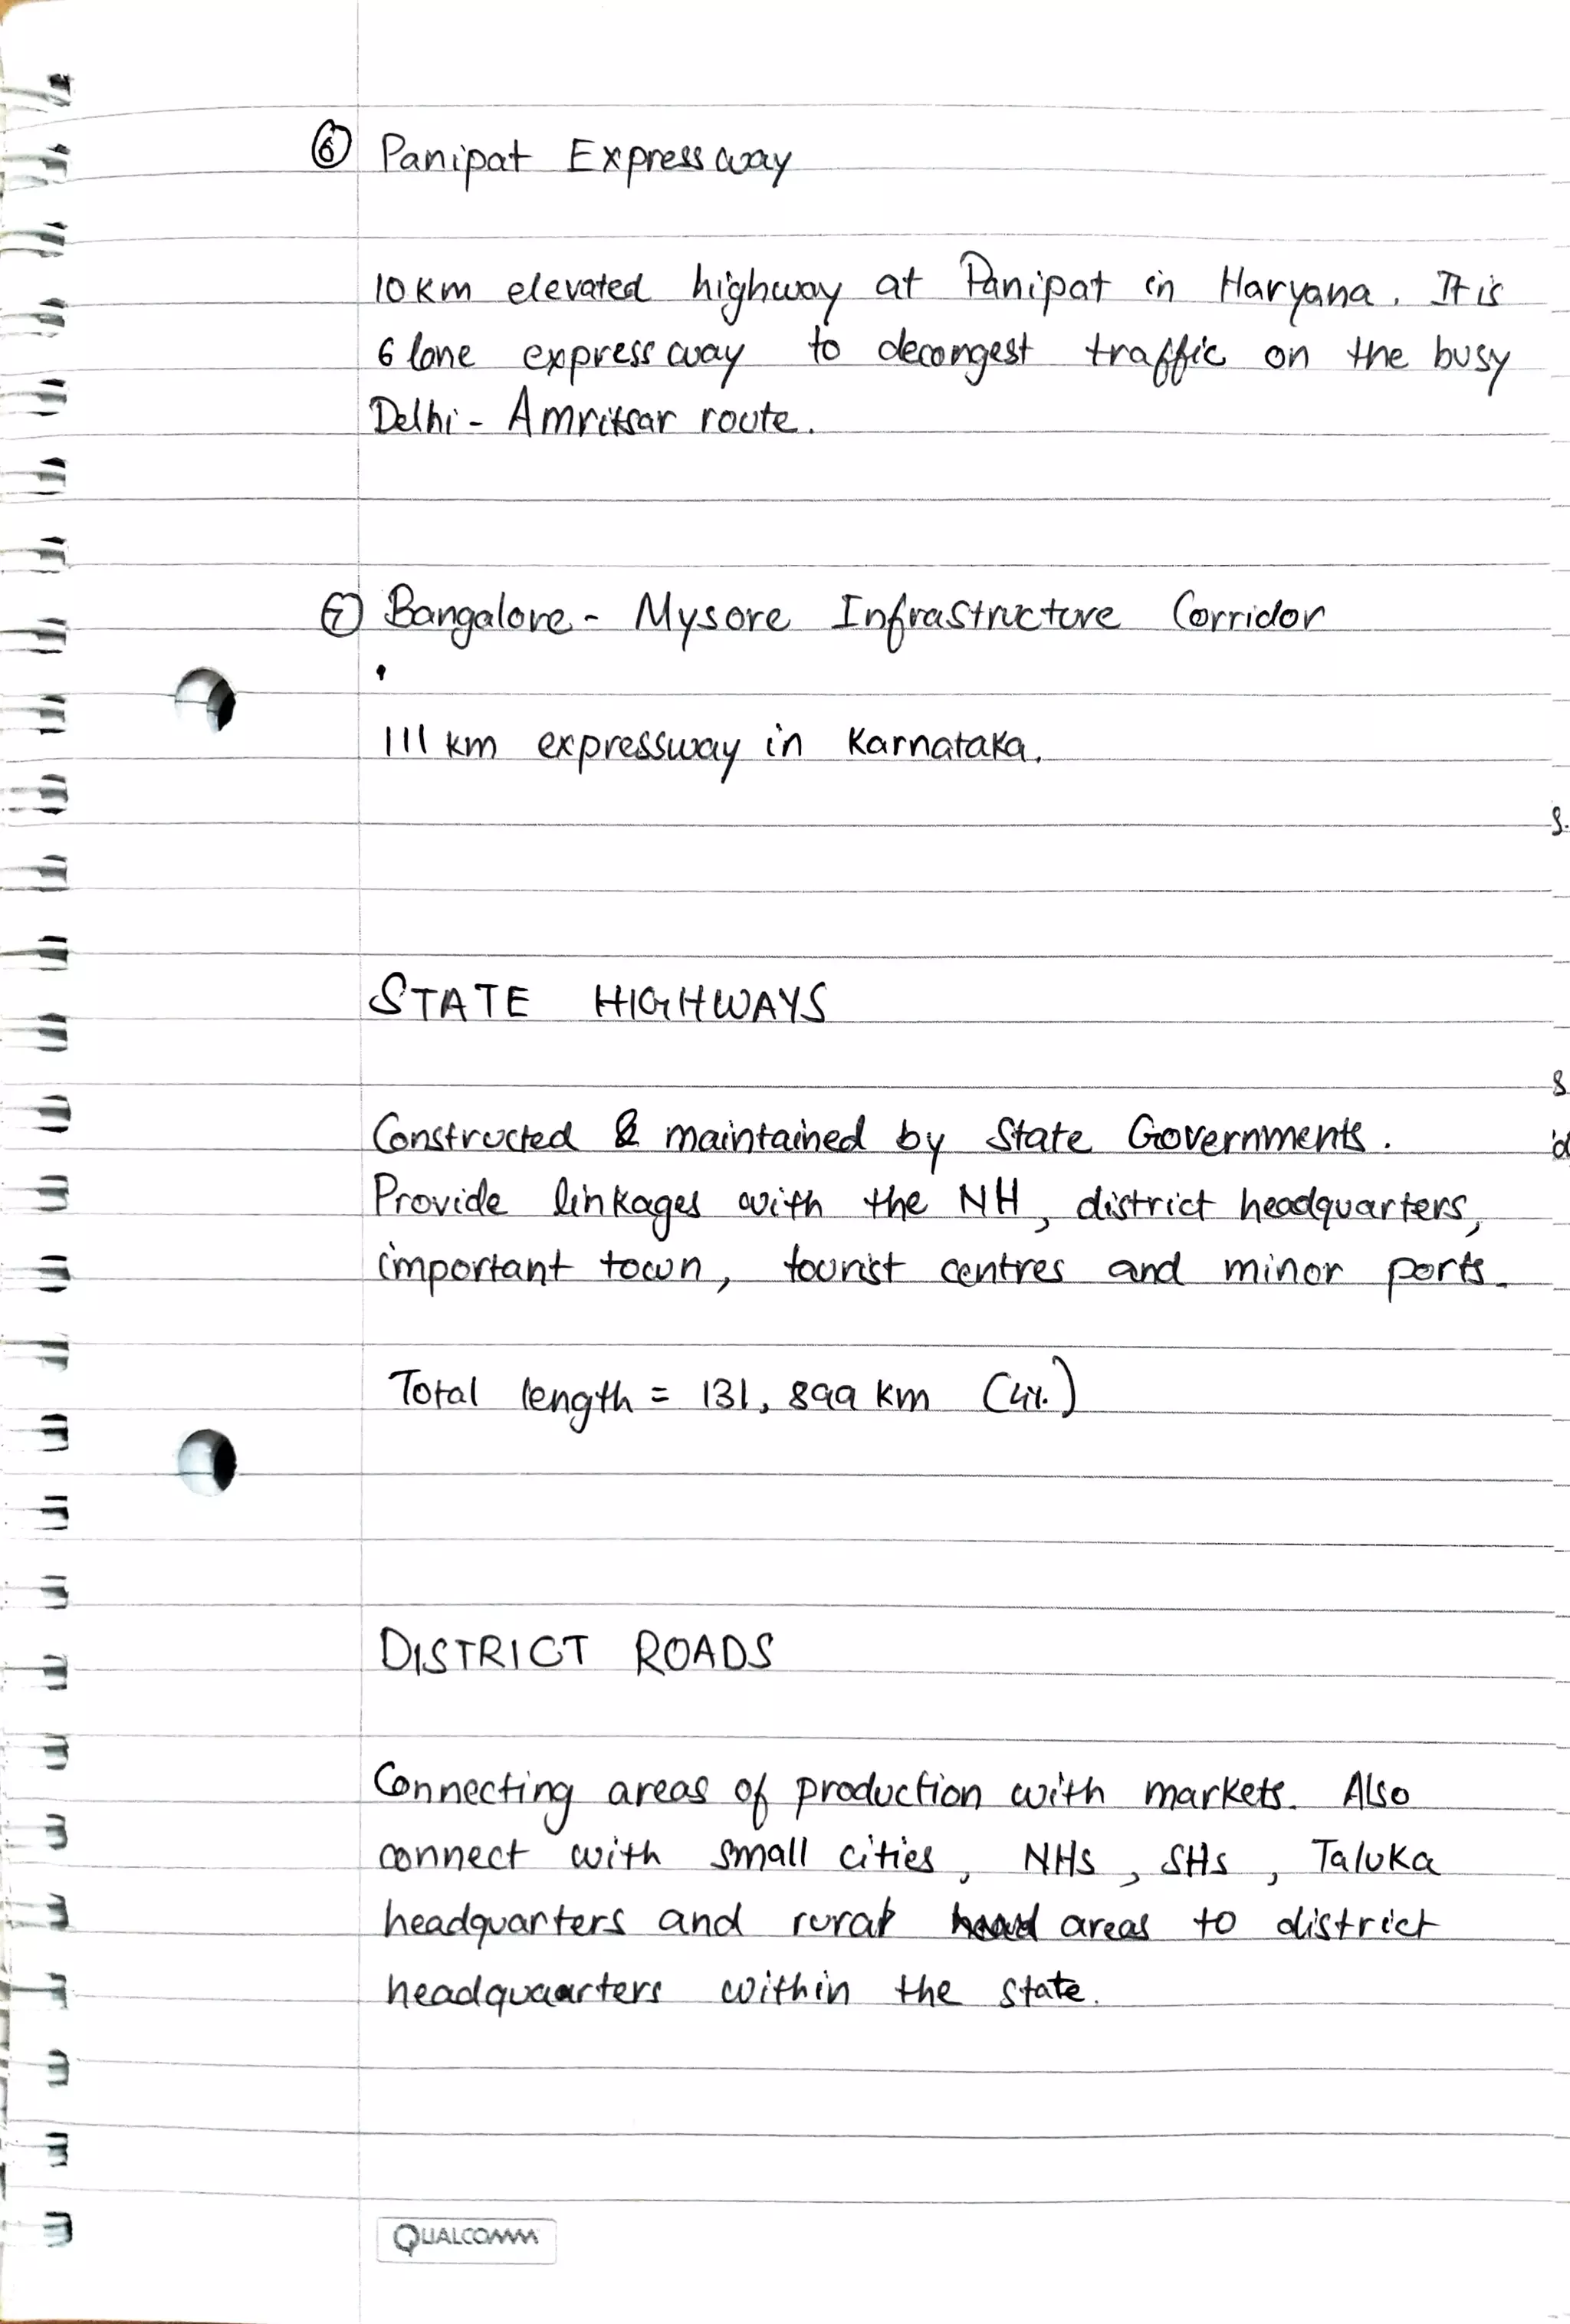 ⑥ Panipat Expressway
10 km elevated highway at Panipat in Haryana. It is
6 lane expressway to decongest traffic on the busy
Delhi - Amritsar route.
⑦ Bangalore - Mysore Infrastructure Corridor
111 km expressway in Karnataka.
STATE HIGHWAYS
Constructed & maintained by State Governments.
Provide linkages with the NH, district headquarters,
important town, tourist centres and minor ports.
Total length = 131,899 km (4%)
DISTRICT ROADS
Connecting areas of production with markets. Also
connect with small cities, NHs, SHs, Taluka
headquarters and rural areas to district
headquaarters within the state.
QUALCOMM